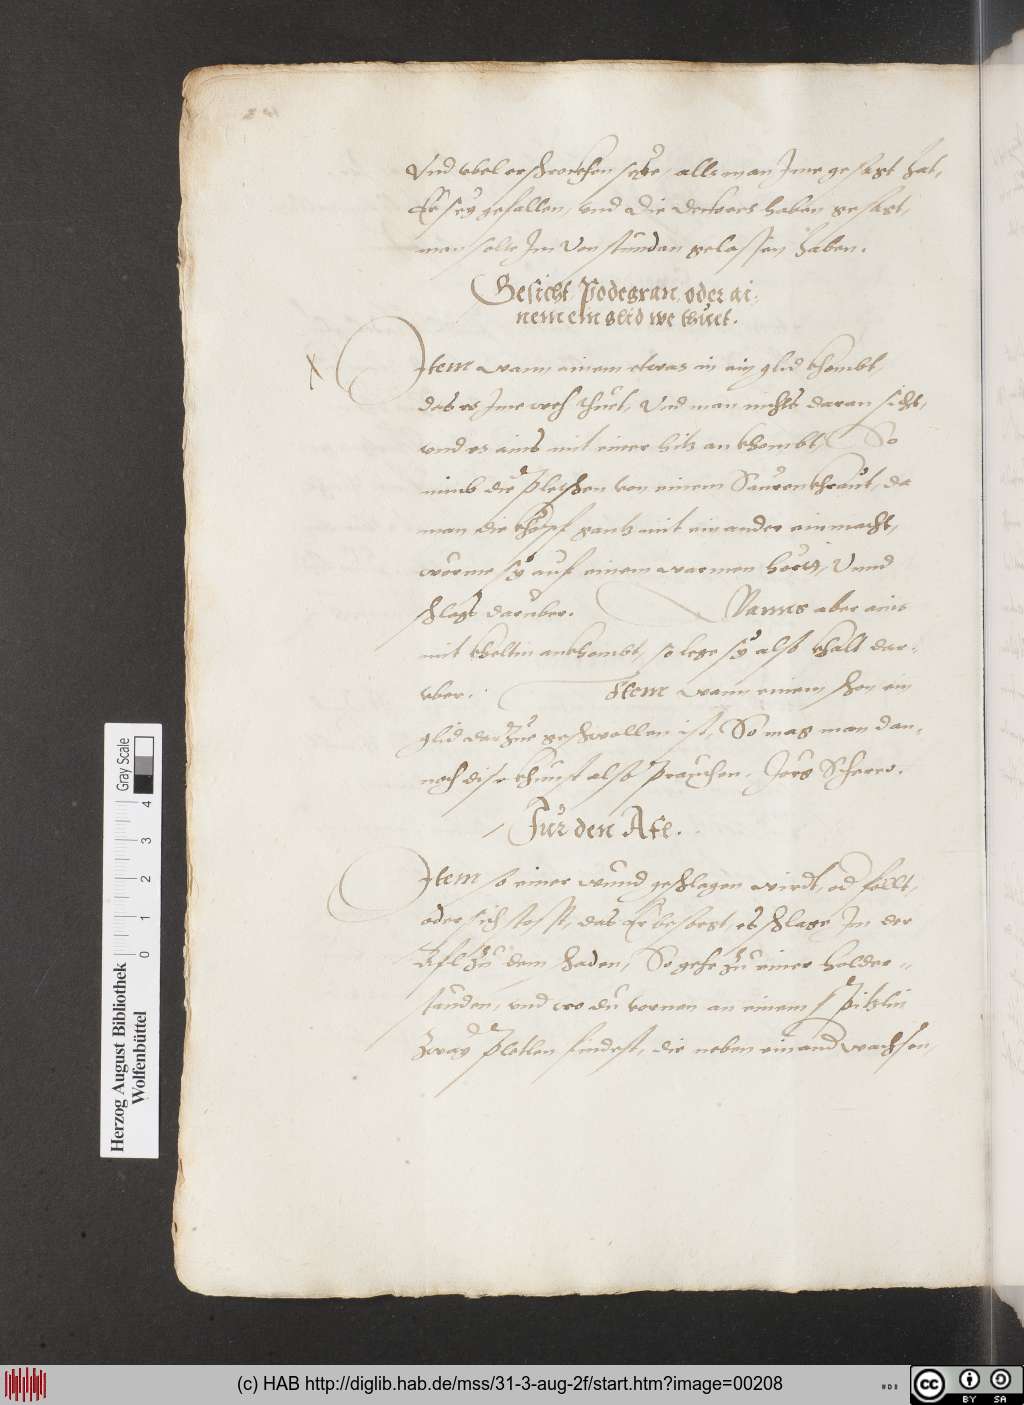 Vnd vbel erschrockhen sehe, alls man Jme gesagt hat,
Er sey gefallen, vnd die doctores haben gesagt,
man solte Jm von stundan gelassen haben.
Gesicht, Podegran, oder ai,
nem ein glid we thuet.
Item wann ainem etwas in ain glid khombt,
das es Jme weh thuet, Vnd man nichts daran sicht,
vnd es ains mit einer hitz an khombt, So
nimb die Pletschen von einem Saurenkhraut, da
man die khöpf gantz mit einander einmacht,
werme sy auf einem warmen herdt, Vnnd
schlags daruber. Wanns aber ains
mit kheltin ankhombt, so lege sy also khalt dar-
vber. Item wann einem schon ein
glid darzue geschwollen ist, So mag man dan,
noch dise khunst also prauchen. Jörg Scherer.
Für den Afl.
Item so einer wund geschlagen wirdt, od fellt,
oder sich stosst, das Er besorgt, es schlage Jm der
Afl zu dem schaden, So gehe zu einer holder-
stauden, vnd wo du vornen an einem spitzlin
zway pletlen findest, die neben einand wachsen,
Herzog August Bibliothek
Wolfenbüttel
0 1 2 3 4
Gray Scale
(c) HAB http://diglib.hab.de/mss/31-3-aug-2f/start.htm?image=00208
cc BY SA